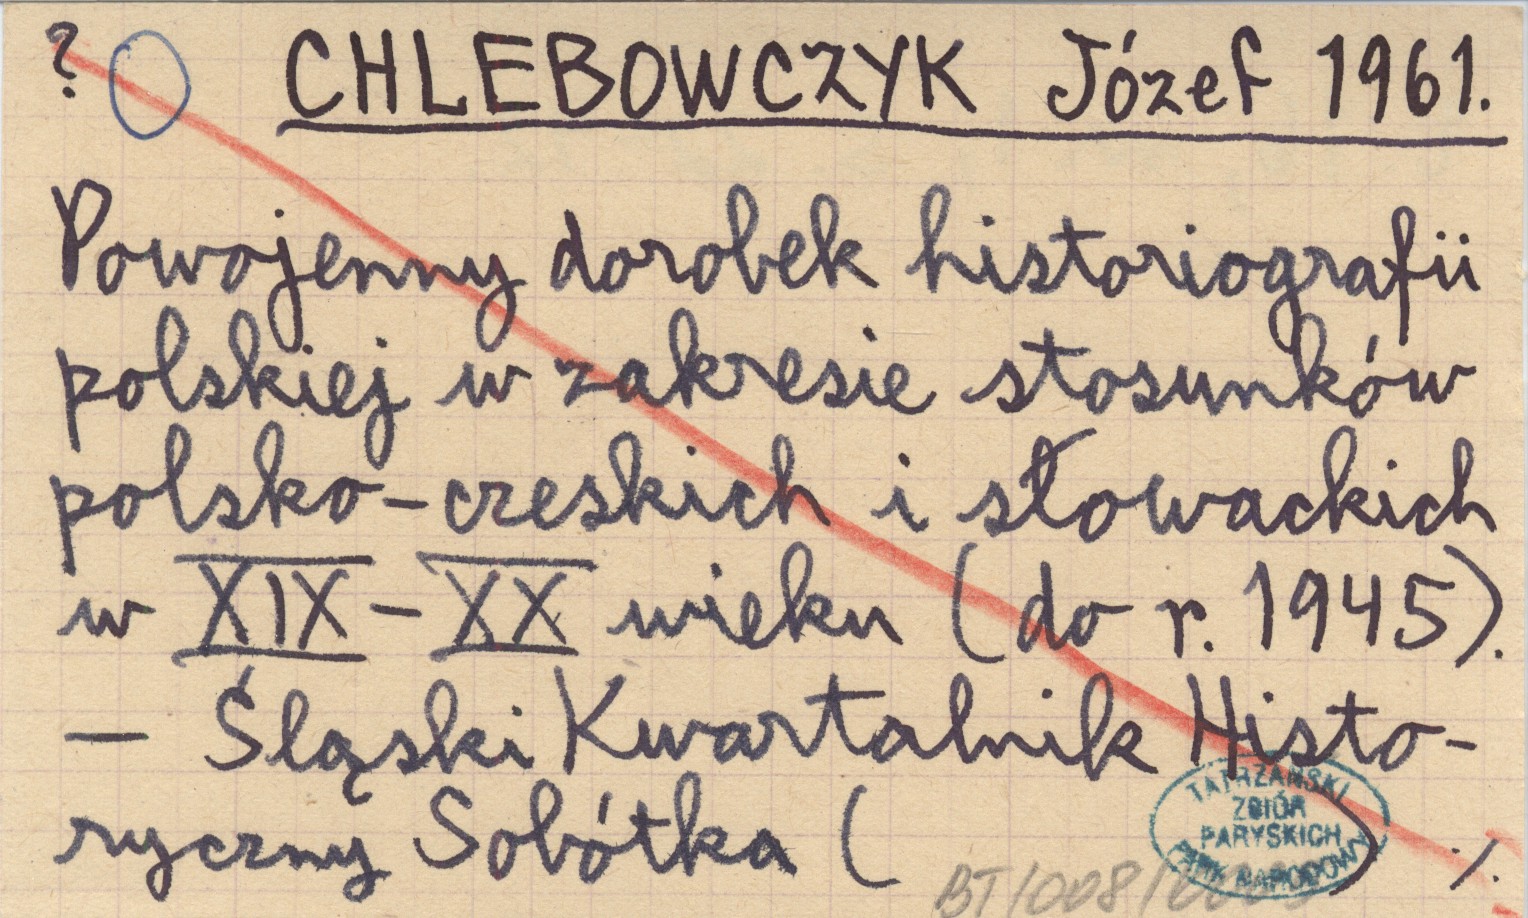 ? CHLEBOWCZYK Józef 1961.
Powojenny dorobek historiografii
polskiej w zakresie stosunków
polsko-czeskich i słowackich
w XIX - XX wieku (do r. 1945).
- Śląski Kwartalnik Histo-
ryczny Sobótka ( ) ./.
TATRZAŃSKI
ZBIÓR
PARYSKICH
PARK NARODOWY
BT/008/